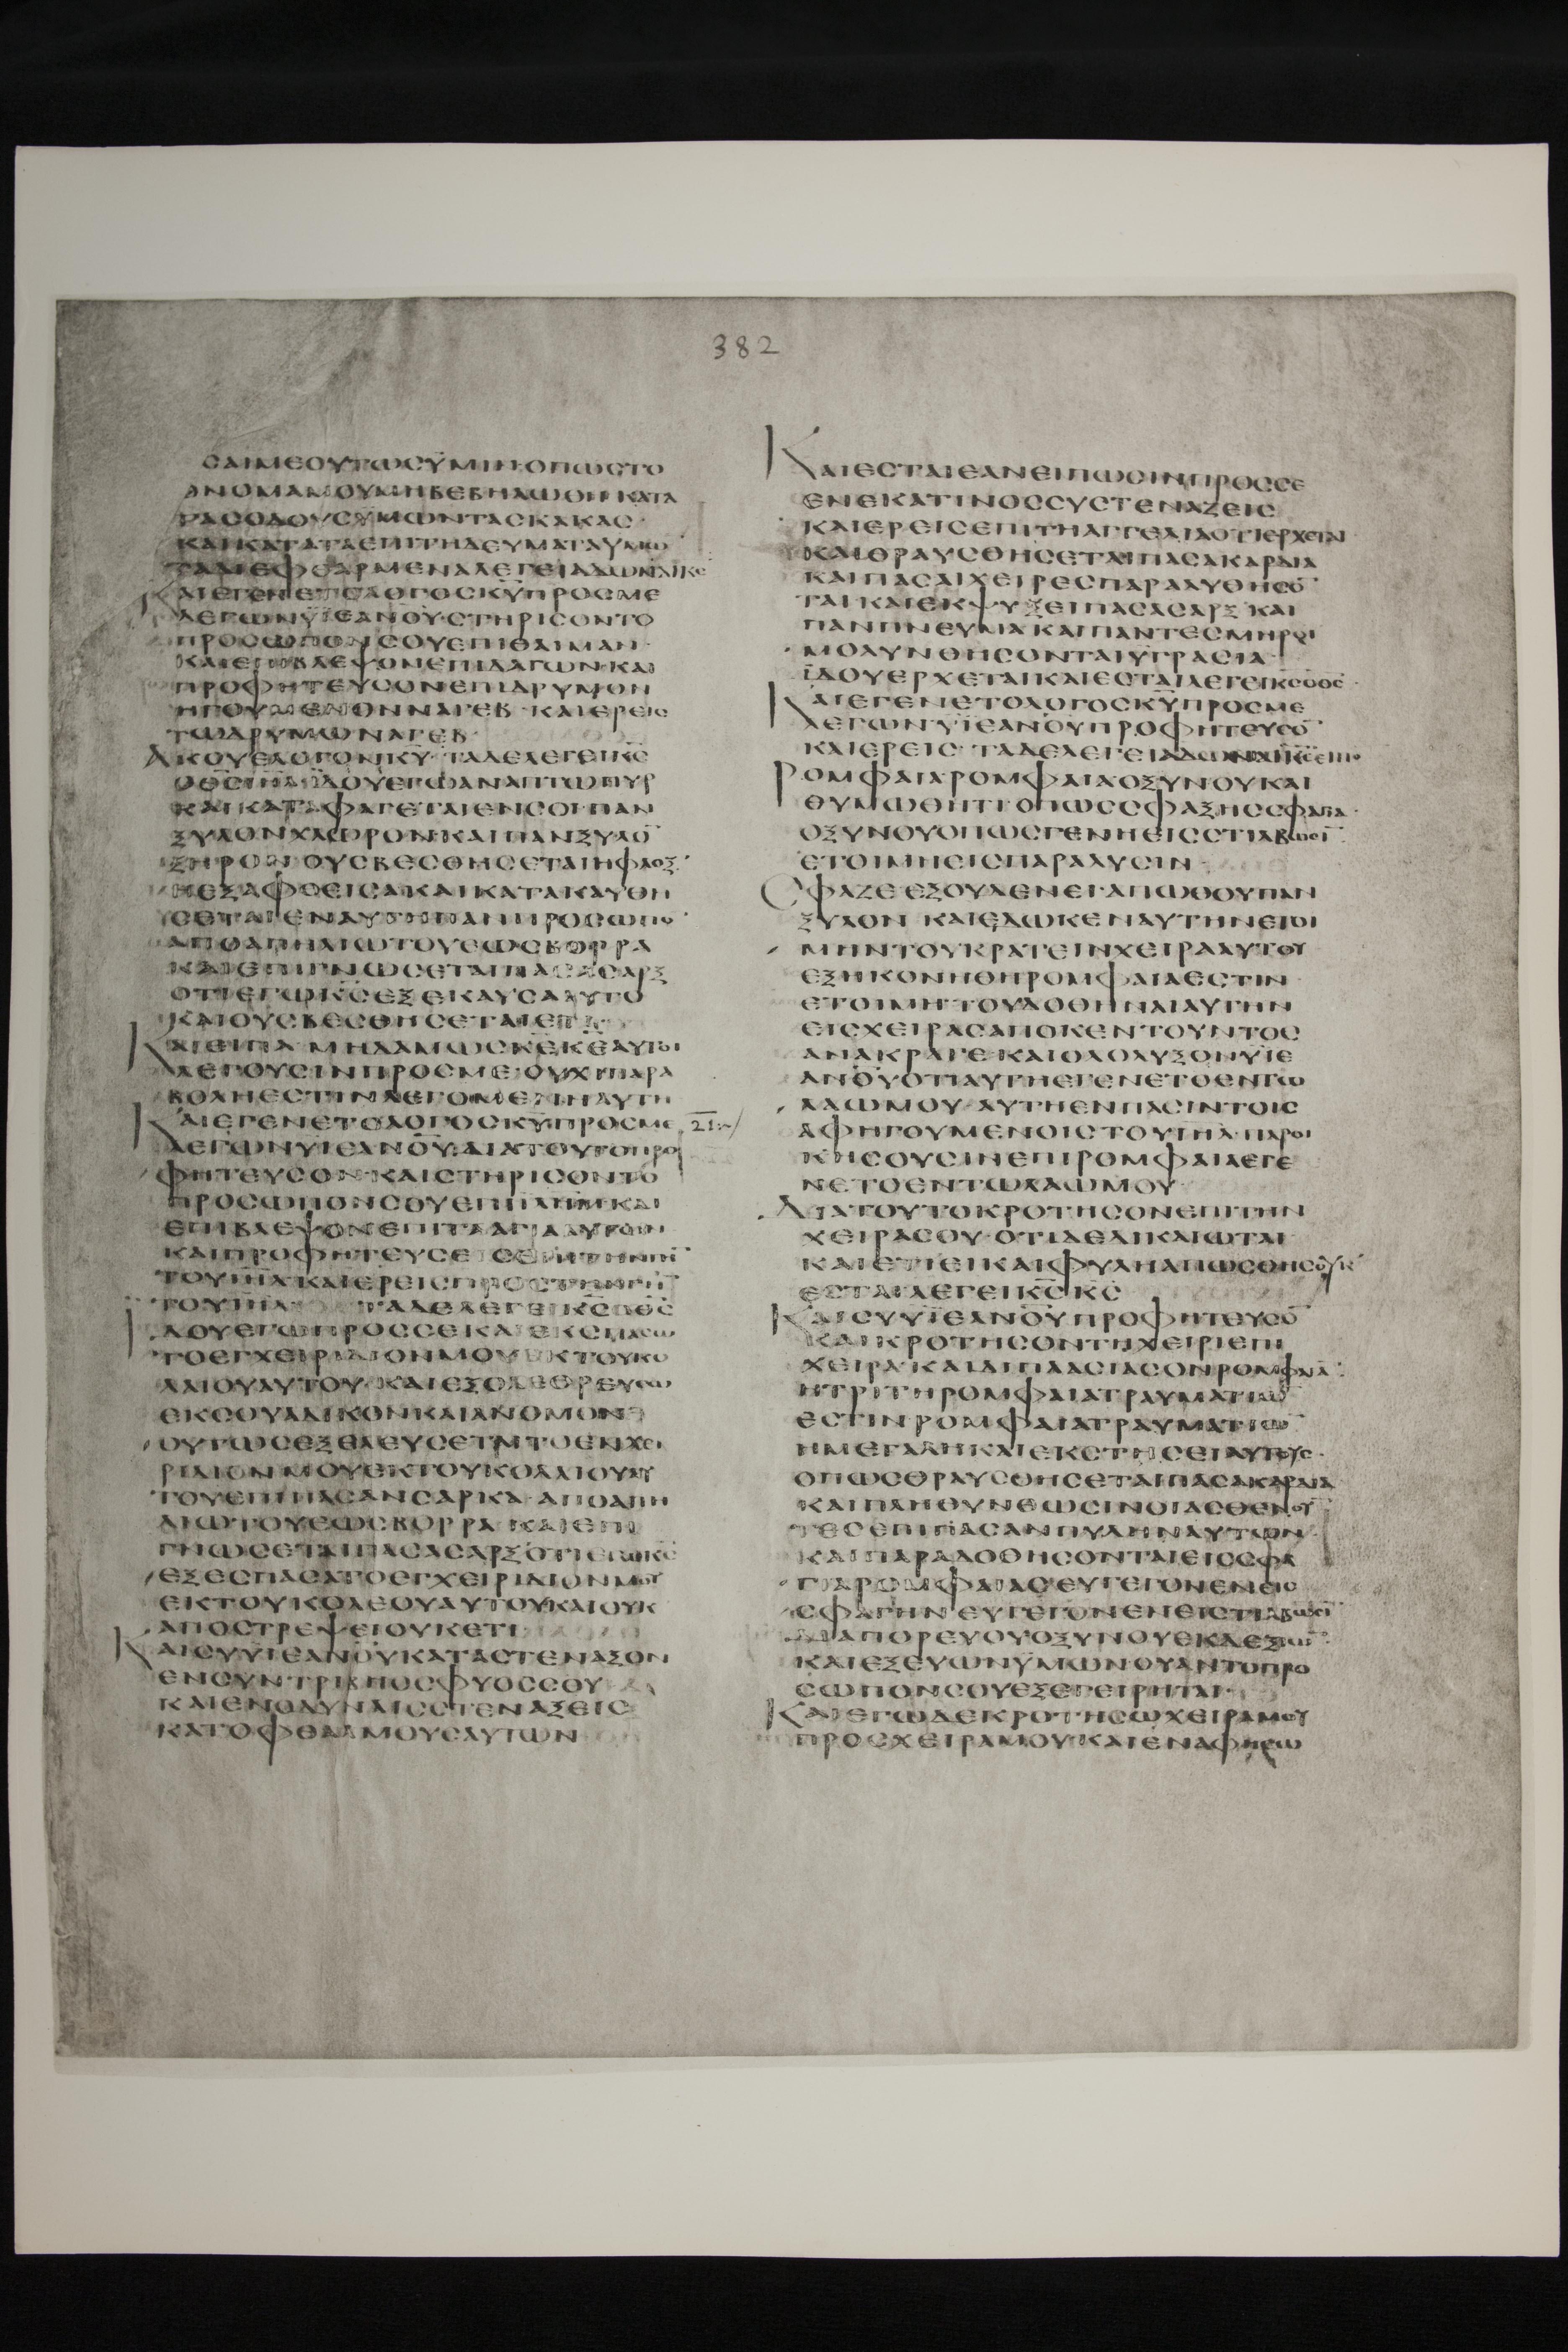 382
ϹΑΙΜΕΟΥΤΩϹΫΜΙΝ·ΟΠΩϹΤΟ
ΟΝΟΜΑΜΟΥΜΗΒΕΒΗΛΩΘΗ ΚΑΤΑ
ΤΑϹΟΔΟΥϹΫΜΩΝΤΑϹΚΑΚΑϹ·
ΚΑΙΚΑΤΑΤΑΕΠΙΤΗΔΕΥΜΑΤΑΫΜΩ̅
ΤΑΔΙΕΦΘΑΡΜΕΝΑΛΕΓΕΙΑΔΩΝΑΪΚϹ̅
ΚΑΙΕΓΕΝΕΤΟΛΟΓΟϹΚΥ̅ΠΡΟϹΜΕ
ΛΕΓΩΝΥΪΕΑΝΟΥ̅·ϹΤΗΡΙϹΟΝΤΟ
ΠΡΟϹΩΠΟΝϹΟΥΕΠΙΘΑΙΜΑΝ·
ΚΑΙΕΠΙΒΛΕΨΟΝΕΠΙΔΑΓΩΝ·ΚΑΙ
ΠΡΟΦΗΤΕΥϹΟΝΕΠΙΔΡΥΜΟΝ
ΗΓΟΥΜΕΝΟΝΝΑΓΕΒ·ΚΑΙΕΡΕΙϹ
ΤΩΔΡΥΜΩΝΑΓΕΒ·
ΑΚΟΥΕΛΟΓΟΝΚΥ̅·ΤΑΔΕΛΕΓΕΙΚϹ̅
ΟΘϹ̅ΙΗΛ̅ΙΔΟΥΕΓΩΑΝΑΠΤΩΠΥΡ
ΚΑΙΚΑΤΑΦΑΓΕΤΑΙΕΝϹΟΙΠΑΝ
ΞΥΛΟΝΧΛΩΡΟΝΚΑΙΠΑΝΞΥΛΟ̅
ΞΗΡΟΝ·ΟΥϹΒΕϹΘΗϹΕΤΑΙΗΦΛΟΞ·
ΗΕΞΑΦΘΕΙϹΑΚΑΙΚΑΤΑΚΑΥΘΗ
ϹΕΤΑΙΕΝΑΥΤΗΠΑΝΠΡΟϹΩΠΟ̅·
ΑΠΟΑΠΗΛΙΩΤΟΥΕΩϹΒΟΡΡΑ
ΚΑΙΕΠΙΓΝΩϹΕΤΑΙΠΑϹΑϹΑΡΞ
ΟΤΙΕΓΩΚϹ̅ΕΞΕΚΑΥϹΑΑΥΤΟ
ΚΑΙΟΥϹΒΕϹΘΗϹΕΤΑΙΕΤΙ·
ΚΑΙΕΙΠΑ·ΜΗΔΑΜΩϹΚΕ̅ΚΕ̅ΑΥΤΟΙ
ΛΕΓΟΥϹΙΝΠΡΟϹΜΕ·ΟΥΧΙΠΑΡΑ
ΒΟΛΗΕϹΤΙΝΛΕΓΟΜΕΝΗΑΥΤΗ
ΚΑΙΕΓΕΝΕΤΟΛΟΓΟϹΚΥ̅ΠΡΟϹΜΕ 21:~/
ΛΕΓΩΝΥΪΕΑΝΟΥ̅·ΔΙΑΤΟΥΤΟΠΡΟ
ΦΗΤΕΥϹΟΝ·ΚΑΙϹΤΗΡΙϹΟΝΤΟ
ΠΡΟϹΩΠΟΝϹΟΥΕΠΙΙΛΗΜ̅ΚΑΙ
ΕΠΙΒΛΕΨΟΝΕΠΙΤΑΑΓΙΑΑΥΤΩΝ
ΚΑΙΠΡΟΦΗΤΕΥϹΕ
ΤΟΥΙΗΛ̅ΚΑΙΕΡΕΙϹΠΡΟϹΤΗΝΓΗ̅
ΤΟΥΙΗΛ̅ ΤΑΔΕΛΕΓΕΙΚϹ̅ΘϹ̅
ΙΔΟΥΕΓΩΠΡΟϹϹΕΚΑΙΕΚϹΠΑϹΩ
ΤΟΕΓΧΕΙΡΙΔΙΟΝΜΟΥΕΚΤΟΥΚΟ
ΛΑΙΟΥΑΥΤΟΥ·ΚΑΙΕΞΟΛΕΘΡΕΥϹΩ
ΕΚϹΟΥΑΔΙΚΟΝΚΑΙΑΝΟΜΟΝ
ΟΥΤΩϹΕΞΕΛΕΥϹΕΤΑΙΤΟΕΝΧΕΙ
ΡΙΔΙΟΝΜΟΥΕΚΤΟΥΚΟΛΑΙΟΥΑΥ
ΤΟΥΕΠΙΠΑϹΑΝϹΑΡΚΑ·ΑΠΟΑΠΗ
ΛΙΩΤΟΥΕΩϹΒΟΡΡΑ·ΚΑΙΕΠΙ
ΓΝΩϹΕΤΑΙΠΑϹΑϹΑΡΞΟΤΙΕΓΩΚϹ̅
ΕΞΕϹΠΑϹΑΤΟΕΓΧΕΙΡΙΔΙΟΝΜΟΥ
ΕΚΤΟΥΚΟΛΕΟΥΑΥΤΟΥΚΑΙΟΥΚ
ΑΠΟϹΤΡΕΨΕΙΟΥΚΕΤΙ
ΚΑΙϹΥΥΪΕΑΝΟΥ̅ΚΑΤΑϹΤΕΝΑΞΟΝ
ΕΝϹΥΝΤΡΙΒΗΟϹΦΥΟϹϹΟΥ
ΚΑΙΕΝΟΔΥΝΑΙϹϹΤΕΝΑΞΕΙϹ
ΚΑΤΟΦΘΑΛΜΟΥϹΑΥΤΩΝ
ΚΑΙΕϹΤΑΙΕΑΝΕΙΠΩϹΙΝΠΡΟϹϹΕ
ΕΝΕΚΑΤΙΝΟϹϹΥϹΤΕΝΑΖΕΙϹ
ΚΑΙΕΡΕΙϹΕΠΙΤΗΑΓΓΕΛΙΑΟΤΙΕΡΧΕΤΑΙ
ΚΑΙΘΡΑΥϹΘΗϹΕΤΑΙΠΑϹΑΚΑΡΔΙΑ
ΚΑΙΠΑϹΑΙΧΕΙΡΕϹΠΑΡΑΛΥΘΗϹΟ̅
ΤΑΙ·ΚΑΙΕΚΨΥΞΕΙΠΑϹΑϹΑΡΞ·ΚΑΙ
ΠΑΝΠΝΕΥΜΑ·ΚΑΙΠΑΝΤΕϹΜΗΡΟΙ
ΜΟΛΥΝΘΗϹΟΝΤΑΙΫΓΡΑϹΙΑ·
ΪΔΟΥΕΡΧΕΤΑΙΚΑΙΕϹΤΑΙΛΕΓΕΙΚϹ̅ΟΘϹ̅·
ΚΑΙΕΓΕΝΕΤΟΛΟΓΟϹΚΥ̅ΠΡΟϹΜΕ
ΛΕΓΩΝΥΪΕΑΝΟΥ̅ΠΡΟΦΗΤΕΥϹΟ̅
ΚΑΙΕΡΕΙϹ·ΤΑΔΕΛΕΓΕΙΑΔΩΝΑΪΚϹ̅ΕΙΠΟ
ΡΟΜΦΑΙΑΡΟΜΦΑΙΑΟΞΥΝΟΥΚΑΙ
ΘΥΜΩΘΗΤΙΟΠΩϹϹΦΑΞΗϹϹΦΑΓΙΑ·
ΟΞΥΝΟΥΟΠΩϹΓΕΝΗΕΙϹϹΤΙΛΒΩϹΙ̅
ΕΤΟΙΜΗΕΙϹΠΑΡΑΛΥϹΙΝ
ϹΦΑΖΕ·ΕΞΟΥΔΕΝΕΙ·ΑΠΩΘΟΥΠΑΝ
ΞΥΛΟΝ·ΚΑΙΕΔΩΚΕΝΑΥΤΗΝΕΤΟΙ
ΜΗΝΤΟΥΚΡΑΤΕΙΝΧΕΙΡΑΑΥΤΟΥ
ΕΞΗΚΟΝΗΘΗΡΟΜΦΑΙΑΕϹΤΙΝ
ΕΤΟΙΜΗ·ΤΟΥΔΟΘΗΝΑΙΑΥΤΗΝ
ΕΙϹΧΕΙΡΑϹΑΠΟΚΕΝΤΟΥΝΤΟϹ
ΑΝΑΚΡΑΓΕ·ΚΑΙΟΛΟΛΥΞΟΝΥΪΕ
ΑΝΟΥ̅ΟΤΙΑΥΤΗΕΓΕΝΕΤΟΕΝΤΩ
ΛΑΩΜΟΥ·ΑΥΤΗΕΝΠΑϹΙΝΤΟΙϹ
ΑΦΗΓΟΥΜΕΝΟΙϹΤΟΥΙΗΛ̅·ΠΑΡΟΙ
ΚΗϹΟΥϹΙΝΕΠΙΡΟΜΦΑΙΑΕΓΕ
ΝΕΤΟΕΝΤΩΛΑΩΜΟΥ
ΔΙΑΤΟΥΤΟΚΡΟΤΗϹΟΝΕΠΙΤΗΝ
ΧΕΙΡΑϹΟΥ·ΟΤΙΔΕΔΙΚΑΙΩΤΑΙ
ΚΑΙΕΤΙΕΙΚΑΙΦΥΛΗΑΠΩϹΘΗϹΟΥΚ
ΕϹΤΑΙΛΕΓΕΙΚϹ̅ΚϹ̅
ΚΑΙϹΥΥΪΕΑΝΟΥ̅ΠΡΟΦΗΤΕΥϹΟ̅
ΚΑΙΚΡΟΤΗϹΟΝΤΗΧΕΙΡΙΕΠΙ
ΧΕΙΡΑ·ΚΑΙΔΙΠΛΑϹΙΑϹΟΝΡΟΜΦΑΙΑ̅·
ΗΤΡΙΤΗΡΟΜΦΑΙΑΤΡΑΥΜΑΤΙΩ̅
ΕϹΤΙΝΡΟΜΦΑΙΑΤΡΑΥΜΑΤΙΩ̅
ΗΜΕΓΑΛΗΚΑΙΕΚϹΤΗϹΕΙΑΥΤΟΥϹ·
ΟΠΩϹΘΡΑΥϹΘΗϹΕΤΑΙΠΑϹΑΚΑΡΔΙΑ
ΚΑΙΠΛΗΘΥΝΘΩϹΙΝΟΙΑϹΘΕΝΟΥ̅
ΤΕϹΕΠΙΠΑϹΑΝΠΥΛΗΝΑΥΤΩΝ·
ΚΑΙΠΑΡΑΔΟΘΗϹΟΝΤΑΙΕΙϹϹΦΑ
ΓΙΑΡΟΜΦΑΙΑϹΕΥΓΕΓΟΝΕΝΕΙϹ
ϹΦΑΓΗΝ·ΕΥΓΕΓΟΝΕΝΕΙϹϹΤΙΛΒΩϹΙ̅·
ΔΙΑΠΟΡΕΥΟΥΟΞΥΝΟΥΕΚΔΕΞΙΩ̅·
ΚΑΙΕΞΕΥΩΝΫΜΩΝΟΥΑΝΤΟΠΡΟ
ϹΩΠΟΝϹΟΥΕΞΕΓΕΙΡΗΤΑΙ·
ΚΑΙΕΓΩΔΕΚΡΟΤΗϹΩΧΕΙΡΑΜΟΥ
ΠΡΟϹΧΕΙΡΑΜΟΥ·ΚΑΙΕΝΑΦΗϹΩ